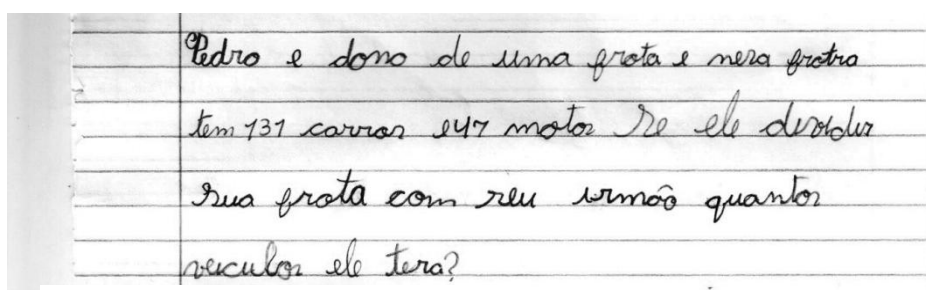 Pedro e dono de uma frota e nesa frotra
tem 131 carros e 47 motos Se ele dividir
sua frota com seu irmão quantos
veiculos ele tera?